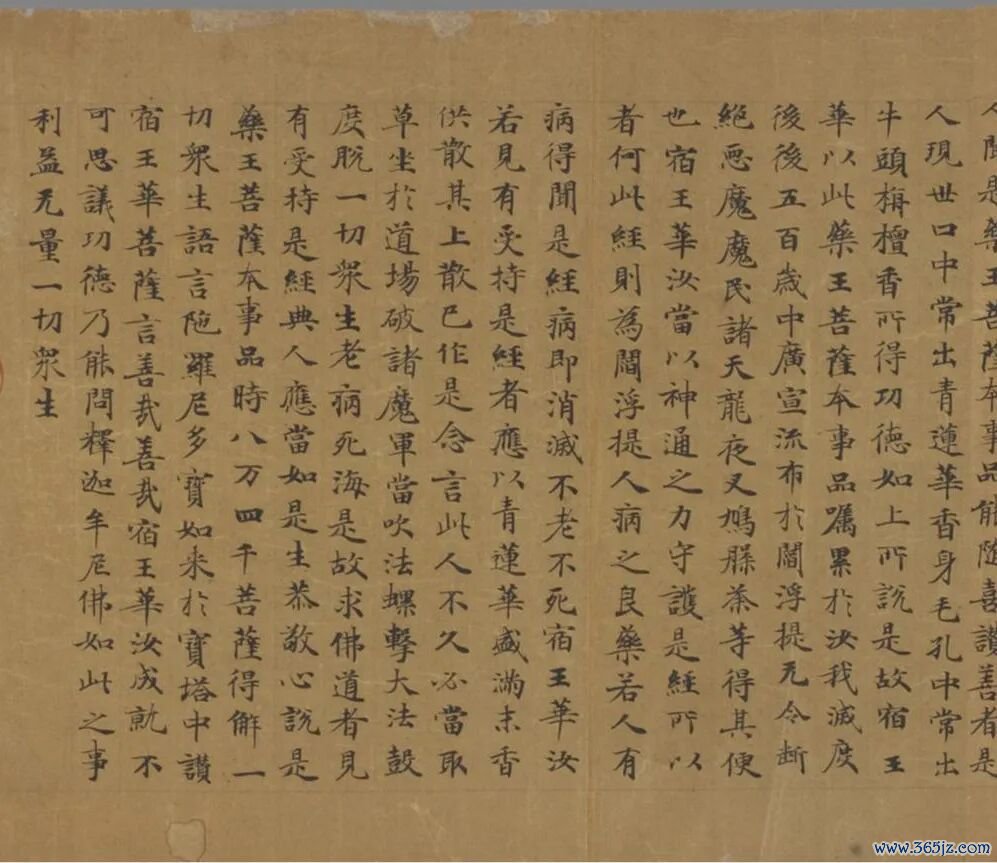 人聞是藥王菩薩本事品能隨喜讚善者是
人現世口中常出青蓮華香身毛孔中常出
牛頭栴檀香所得功德如上所說是故宿王
華以此藥王菩薩本事品囑累於汝我滅度
後後五百歲中廣宣流布於閻浮提无令斷
絕惡魔魔民諸天龍夜叉鳩槃荼等得其便
也宿王華汝當以神通之力守護是經所以
者何此經則為閻浮提人病之良藥若人有
病得聞是經病即消滅不老不死宿王華汝
若見有受持是經者應以青蓮華盛滿末香
供散其上散已作是念言此人不久必當取
草坐於道場破諸魔軍當吹法螺擊大法鼓
度脫一切眾生老病死海是故求佛道者見
有受持是經典人應當如是生恭敬心說是
藥王菩薩本事品時八万四千菩薩得解一
切眾生語言陀羅尼多寶如來於寶塔中讚
宿王華菩薩言善哉善哉宿王華汝成就不
可思議功德乃能問釋迦牟尼佛如此之事
利益无量一切眾生
www.365jz.com